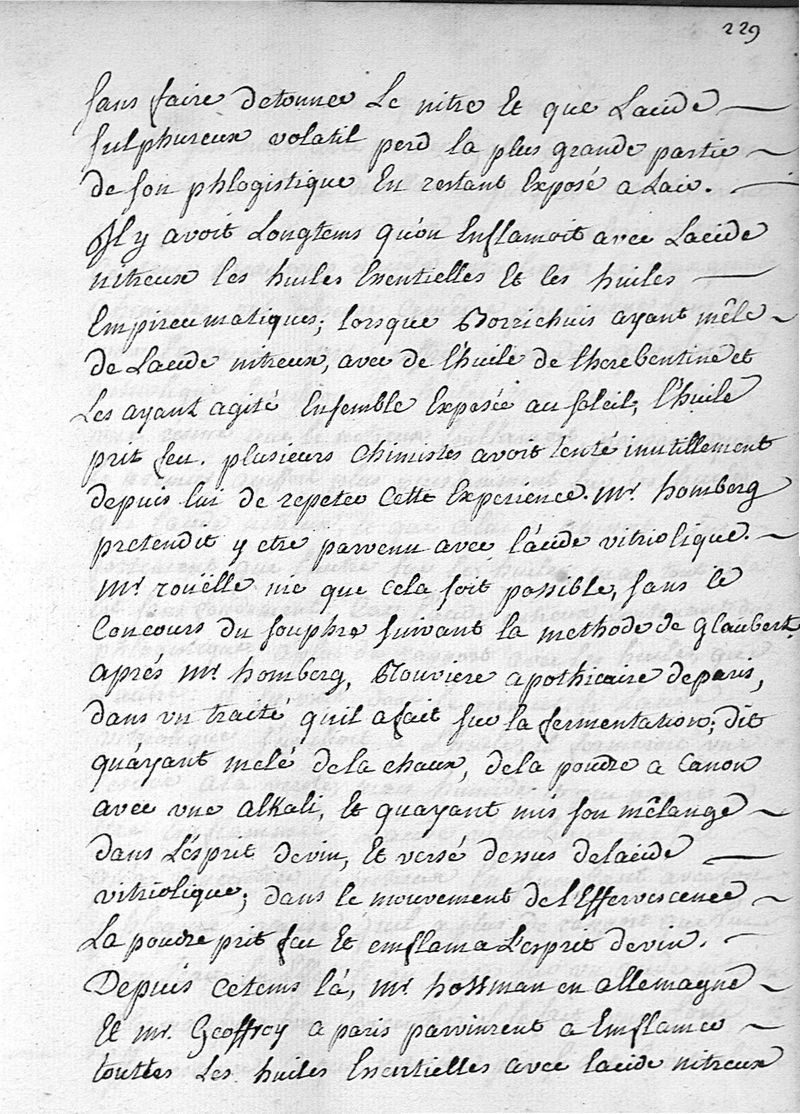 229
sans faire detonner Le nitre Et que Lacide
sulphureux volatil perd la plus grande partie
de son phlogistique En restant Exposé a Lair.
Il y avoit Longtems qu'on Enflamoit avec Lacide
nitreux les huiles Essentielles Et les huiles
Empireumatiques; lorsque Borrichuis ayant mêle
de Lacide nitreux, avec de l'huile de therebentine et
Les ayant agité Ensemble Exposée au soleil; l'huile
prit feu. plusieurs Chimistes avoit tenté inutillement
depuis lui de repeter Cette Experience. Mr. homberg
pretendit y etre parvenu avec l'acide vitriolique.
Mr roüelle nie que cela soit possible, sans le
Concours du souphre suivant la methode de glaubert.
aprés Mr homberg, Rouviere apothicaire de paris,
dans un traité qu'il a fait sur la fermentation; dit
qu'ayant melé de la chaux, de la poudre a Canon
avec vne alkali, Et qu'ayant mis son mêlange
dans L'esprit de vin, Et versé dessus de lacide
vitriolique; dans le mouvement de l'Effervescence
La poudre prit feu Et emflama L'esprit de vin.
Depuis ce tems là, Mr hoffman en allemagne
Et Mr. Geoffroy a paris parvinrent a Emflamer
touttes Les huiles Essentielles avec lacide nitreux